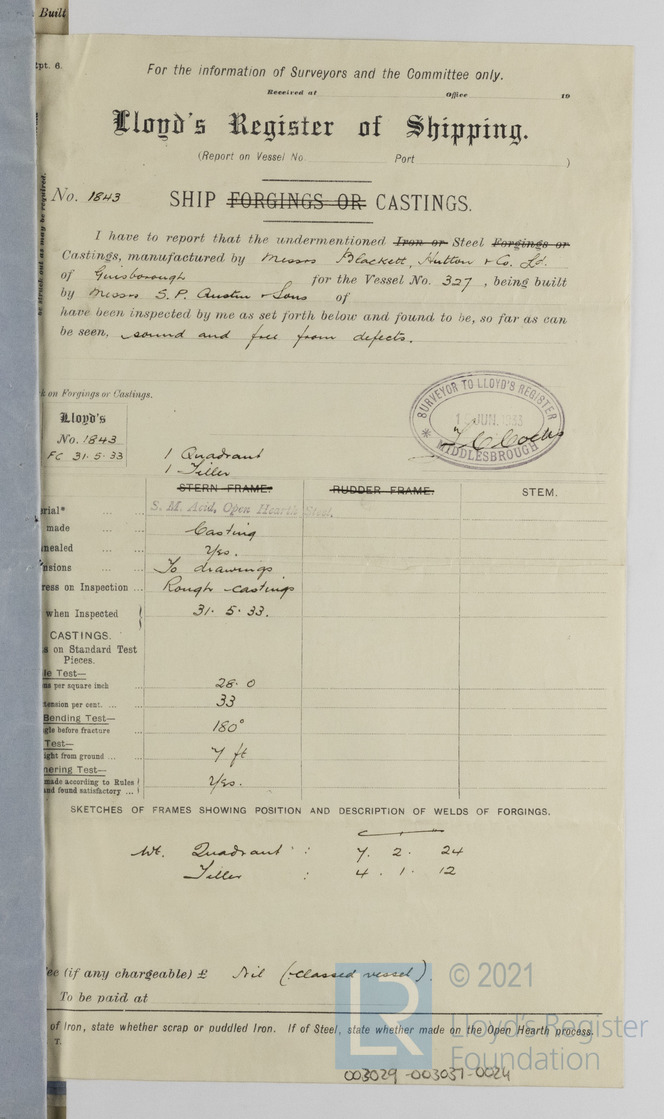 Built
tpt. 6.
For the information of Surveyors and the Committee only.
Received at Office 19
Lloyd's Register of Shipping.
(Report on Vessel No. Port )
be struck out as may be required.
No. 1843 SHIP FORGINGS OR CASTINGS.
I have to report that the undermentioned Iron or Steel Forgings or
Castings, manufactured by Messrs Blackett, Hutton & Co. Ld.
of Guisborough for the Vessel No. 327, being built
by Messrs S. P. Austin & Sons of
have been inspected by me as set forth below and found to be, so far as can
be seen, sound and free from defects.
k on Forgings or Castings.
Lloyd's
No. 1843
FC 31.5.33
SURVEYOR TO LLOYD'S REGISTER
JUN. 1933
MIDDLESBROUGH
1 Quadrant
1 Tiller
STERN FRAME. RUDDER FRAME. STEM.
rial* S. M. Acid, Open Hearth Steel.
made Casting
nnealed Yes.
nsions To drawings
ress on Inspection Rough castings
when Inspected 31. 5. 33.
CASTINGS.
s on Standard Test
Pieces.
le Test—
ns per square inch 28.0
tension per cent. 33
Bending Test—
gle before fracture 180°
Test—
ight from ground 7 ft
nering Test—
made according to Rules
and found satisfactory Yes.
SKETCHES OF FRAMES SHOWING POSITION AND DESCRIPTION OF WELDS OF FORGINGS.
Wt. Quadrant : 7. 2. 24
Tiller : 4. 1. 12
ee (if any chargeable) £ Nil (classed vessel).
To be paid at
of Iron, state whether scrap or puddled Iron. If of Steel, state whether made on the Open Hearth process.
T.
LR © 2021
Lloyd's Register
Foundation
003029-003037-0024